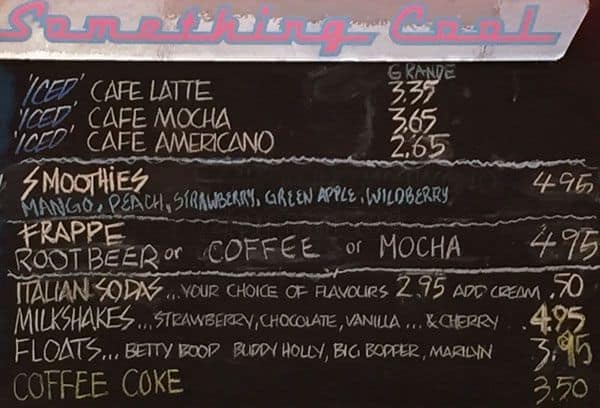 Something Cool
GRANDE
'ICED' CAFE LATTE 3.35
'ICED' CAFE MOCHA 3.65
'ICED' CAFE AMERICANO 2.65
SMOOTHIES 4.95
MANGO, PEACH, STRAWBERRY, GREEN APPLE, WILDBERRY
FRAPPE
ROOT BEER or COFFEE or MOCHA 4.95
ITALIAN SODAS ... YOUR CHOICE OF FLAVOURS 2.95 ADD CREAM .50
MILKSHAKES... STRAWBERRY, CHOCOLATE, VANILLA ... & CHERRY .. 4.95
FLOATS... BETTY BOOP BUDDY HOLLY, BIG BOPPER, MARILYN 3.95
COFFEE COKE 3.50